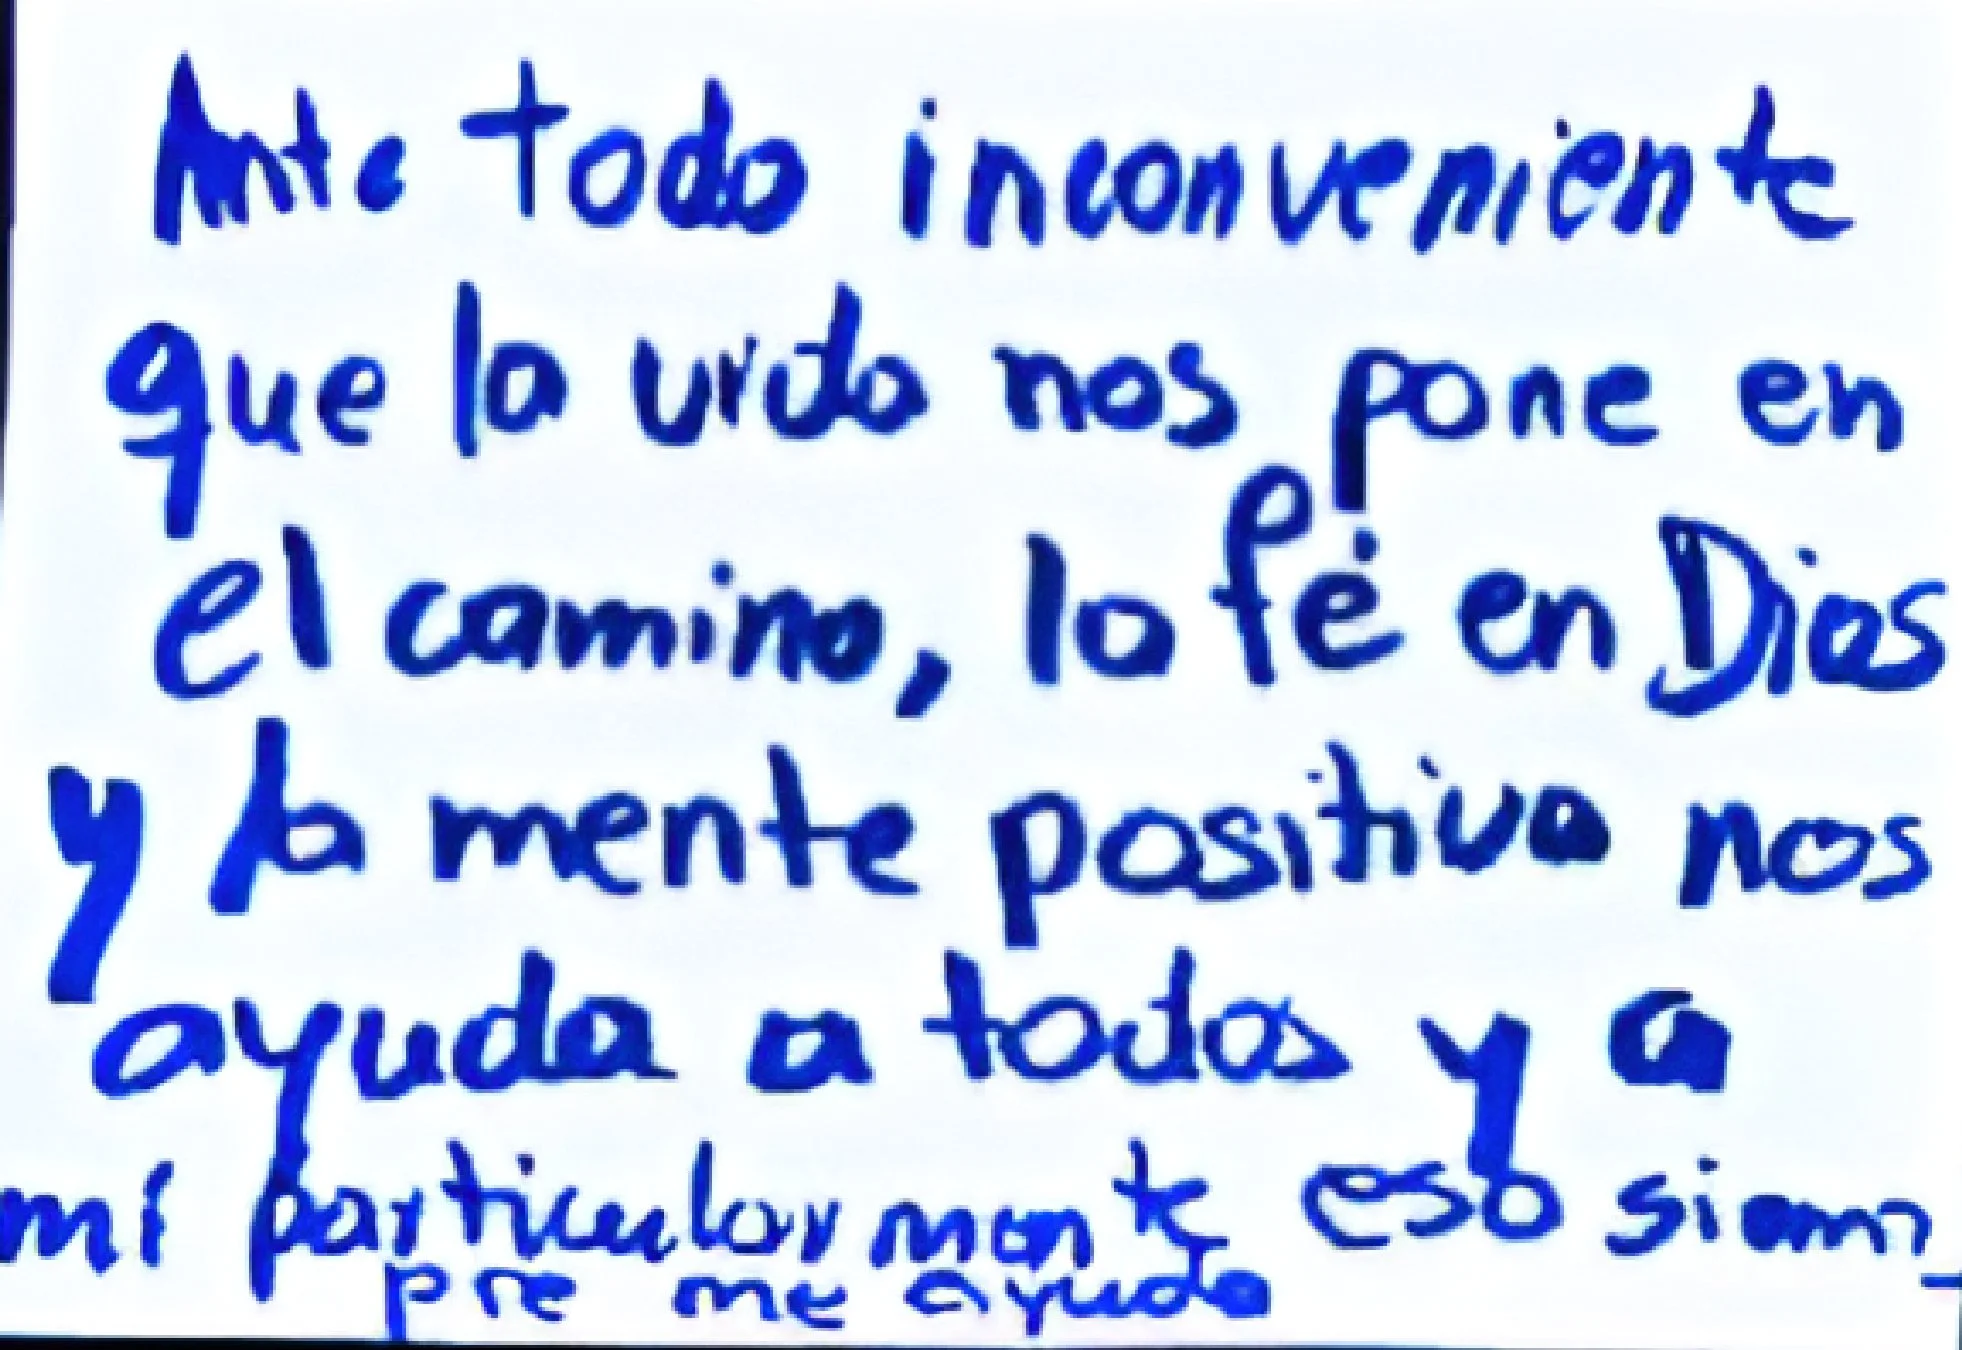 Ante todo inconveniente
que la vida nos pone en
el camino, la fé en Dios
y la mente positiva nos
ayuda a todos y a
mí particularmente eso siem_
pre me ayuda